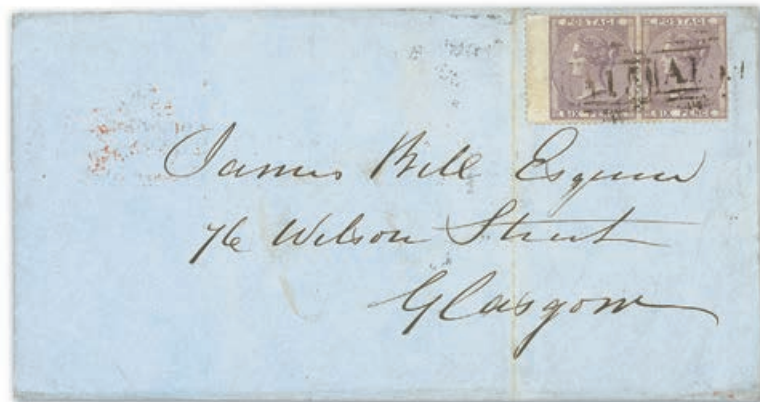 POSTAGE POSTAGE
SIX PENCE SIX PENCE
James Bell Esquire
76 Wilson Street
Glasgow